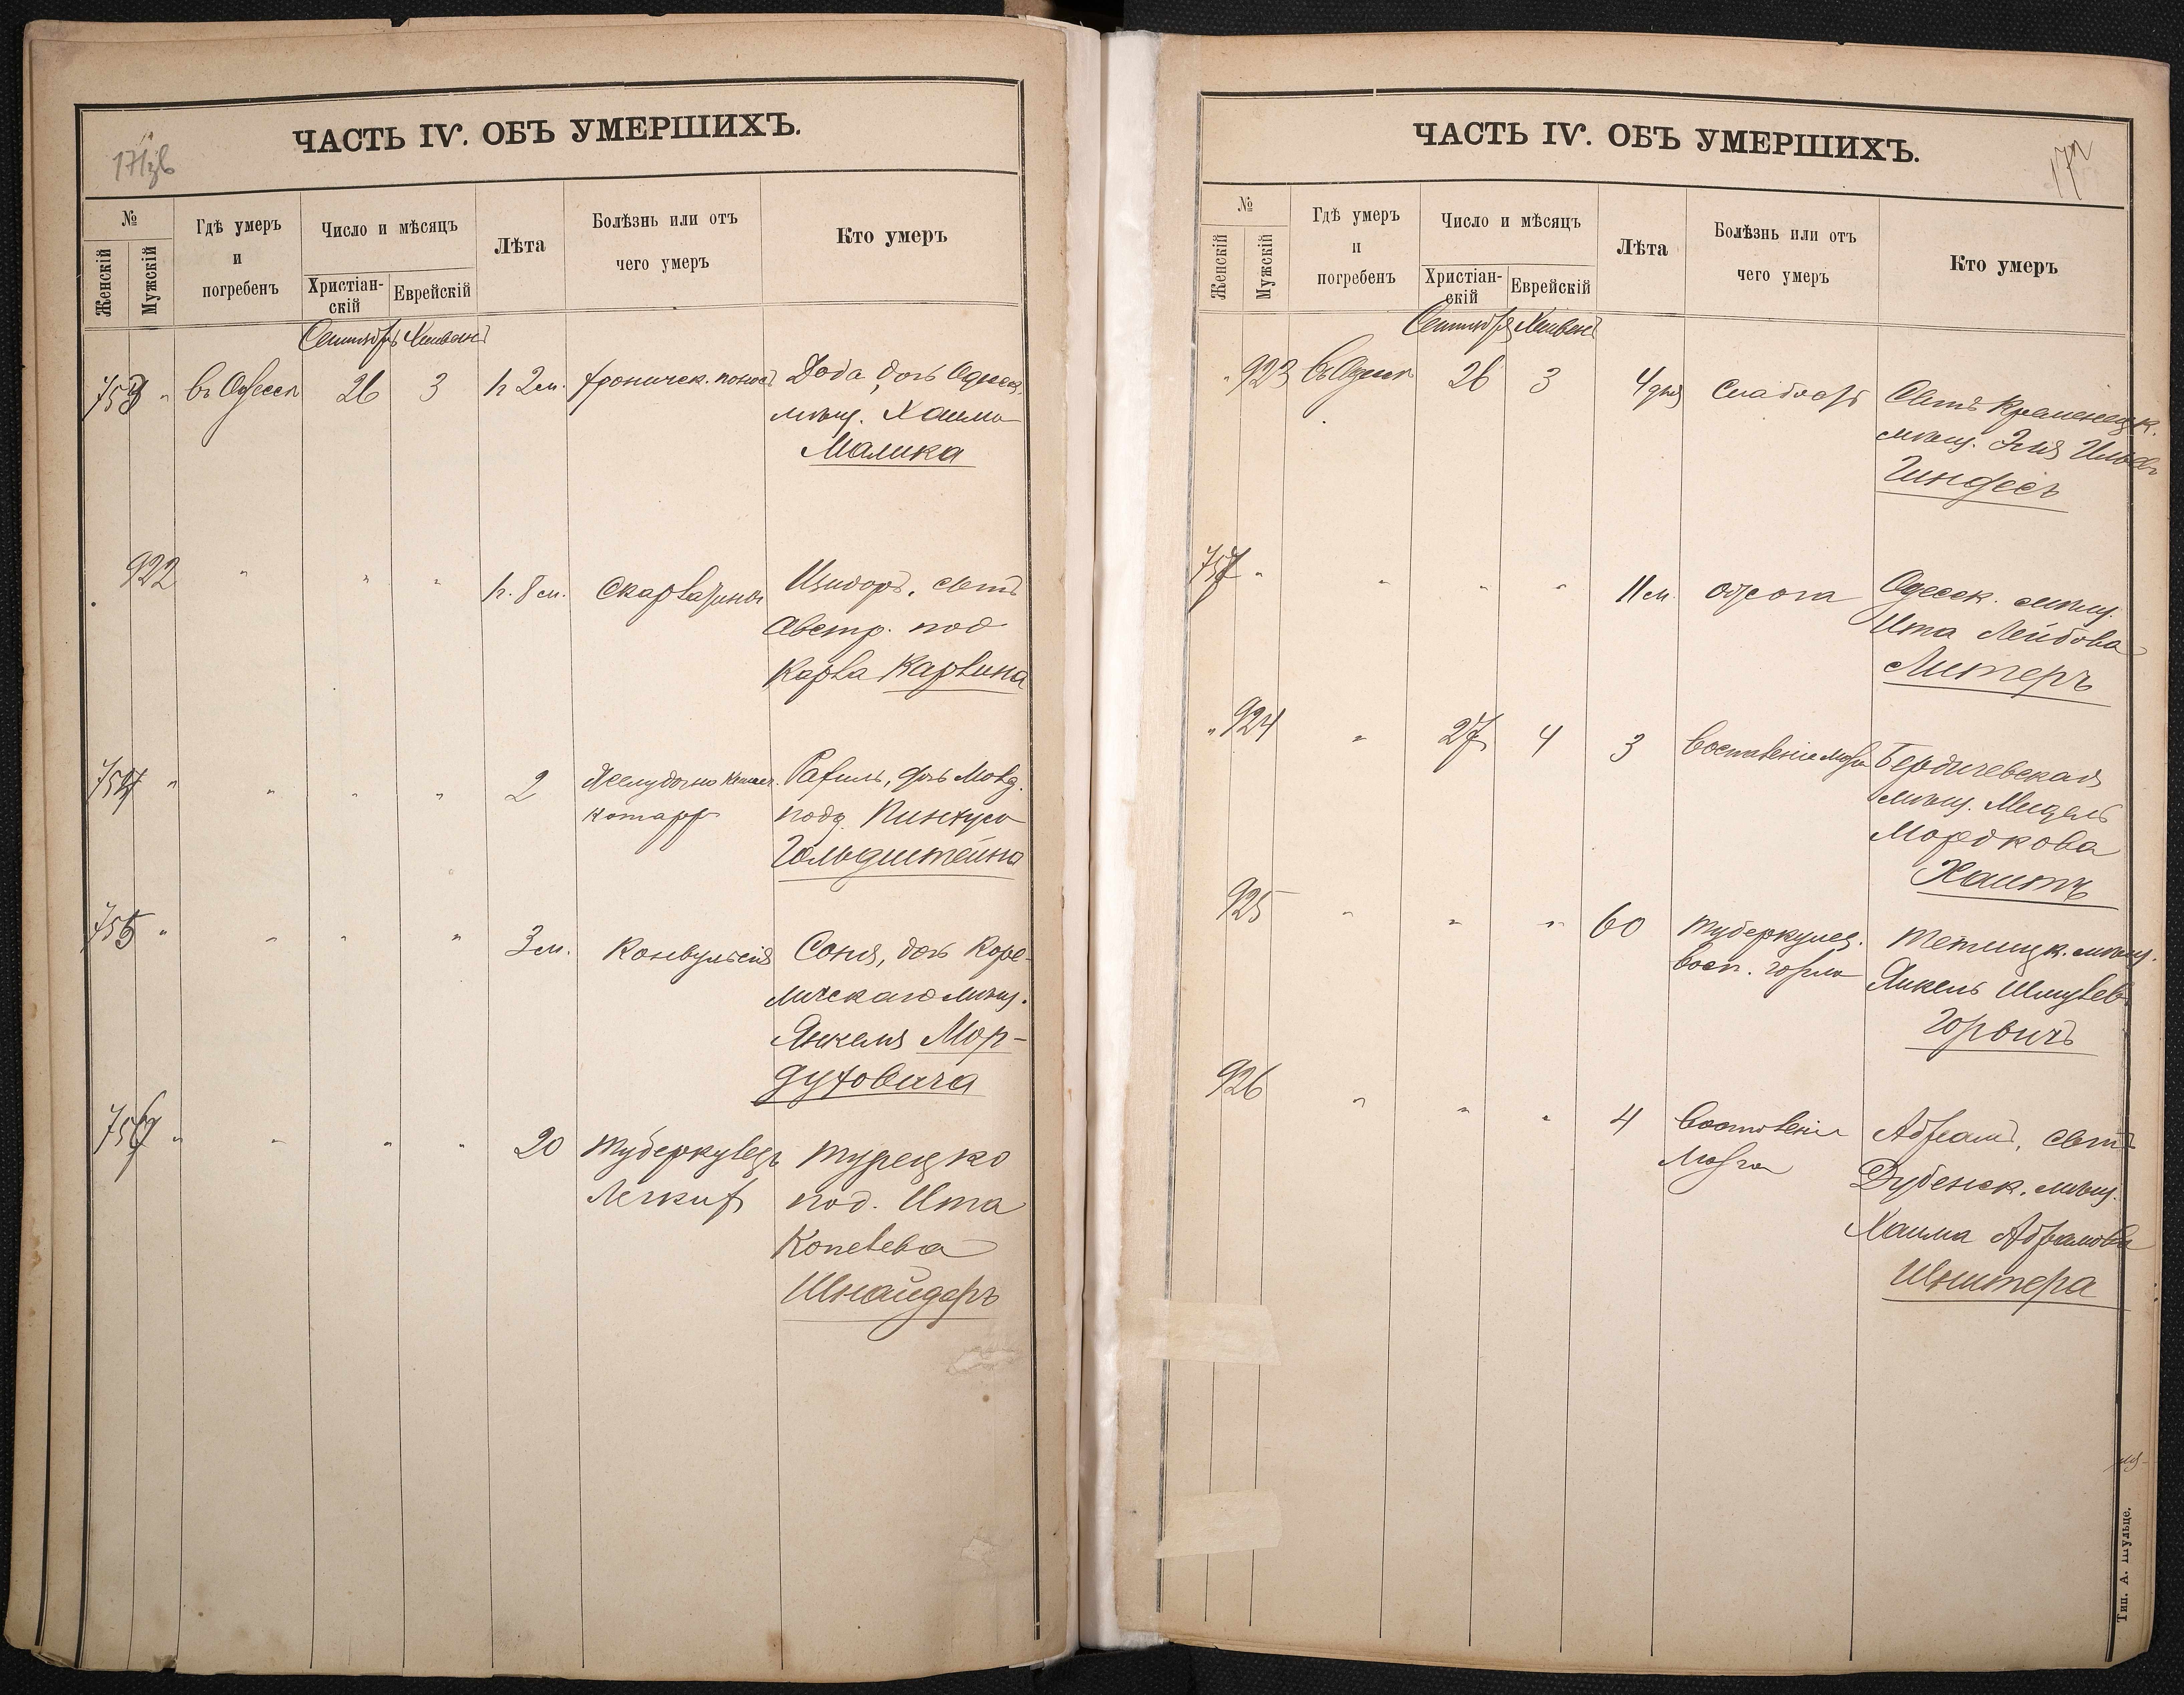 ЧАСТЬ IV. ОБЪ УМЕРШИХЪ.
№
Женскій
Мужскій
Гдѣ умеръ и погребенъ
Число и мѣсяцъ
Христіан-скій
Еврейскій
Лѣта
Болѣзнь или отъ чего умеръ
Кто умеръ
753 " въ Одессѣ 26 3 2 м. хроническ. поносъ Дода, дочь Одесск.
мѣщ. Хаима
Малика
922 " " " 8 м. Скарлатина Изидоръ, сынъ
Австр. под
Карла Карвина
754 " " " " 2 Желудочно кишеч. Рахиль, дочь Молд.
катарръ подд. Пинхуса
Гольдштейна
755 " " " " 3 м. Конвульсія Соня, дочь Коре-
личскаго мѣщ.
Янкеля Мор-
духовича
756 " " " " 20 Туберкулезъ Турецко
Легкихъ под. Ита
Копелева
Шнайдеръ
ЧАСТЬ IV. ОБЪ УМЕРШИХЪ.
172
№
Женскій
Мужскій
Гдѣ умеръ и погребенъ
Число и мѣсяцъ
Христіан-скій
Еврейскій
Лѣта
Болѣзнь или отъ чего умеръ
Кто умеръ
" 923 въ Одессѣ 26 3 4 дня Слабость Сынъ Кременецк.
мѣщ.
Гиндесъ
757 " " " " 11 м. Одесск. мѣщ.
Ита Лейбова
Литеръ
" 924 " 27 4 3 Воспаленіе мозга Бердичевская
мѣщ.
Мордкова
925 " " " 60 Туберкулез. мѣщ.
восп. горла Янкель Шмулев.
Горвичъ
926 " " " 4 Воспаленіе Абрамъ, сынъ
Мозга Дубенск. мѣщ.
Хаима Абрамова
Шнитера
Тип. А. Шульце.